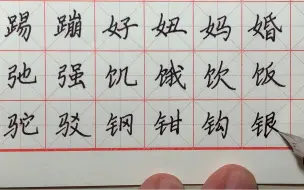 踢蹦好妞妈婚
弛强饥饿饮饭
驼驳钢钳钩银